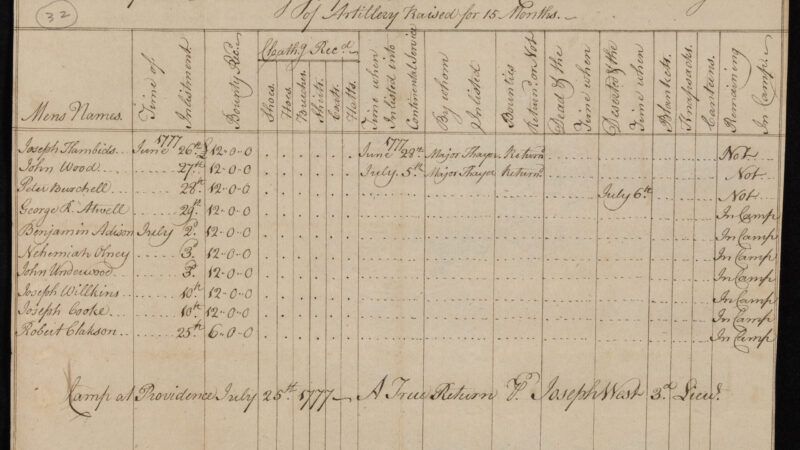 32
of Artillery Raised for 15 Months.
Mens Names. Time of Inlistment Bounty Recd Cloathg Recd. Shoes. Hors. Breeches. Shirts. Coats. Hatts. Time when Inlisted into Continental Service By whom Inlisted Bounties Return'd or Not Dead & the Time when Deserted & the Time when Blankets. Knapsacks. Cantans. Remaining In Camp.
Joseph Hambids June 1777 26th £ 12-0-0 June 1777 29th Major Thayer Return'd Not
John Wood 27th 12-0-0 July 5th Major Thayer Return'd Not
Peter Burchell 28th 12-0-0 July 6th Not
George R. Atwell 29th 12-0-0 In Camp
Benjamin Adison July 2d 12-0-0 In Camp
Nehemiah Olney 3d 12-0-0 In Camp
John Underwood 3d 12-0-0 In Camp
Joseph Willkins 10th 12-0-0 In Camp
Joseph Cooke 10th 12-0-0 In Camp
Robert Clakson 25th 6-0-0 In Camp
Camp at Providence July 25th 1777 A True Return Pr Joseph West 3d Lieut.